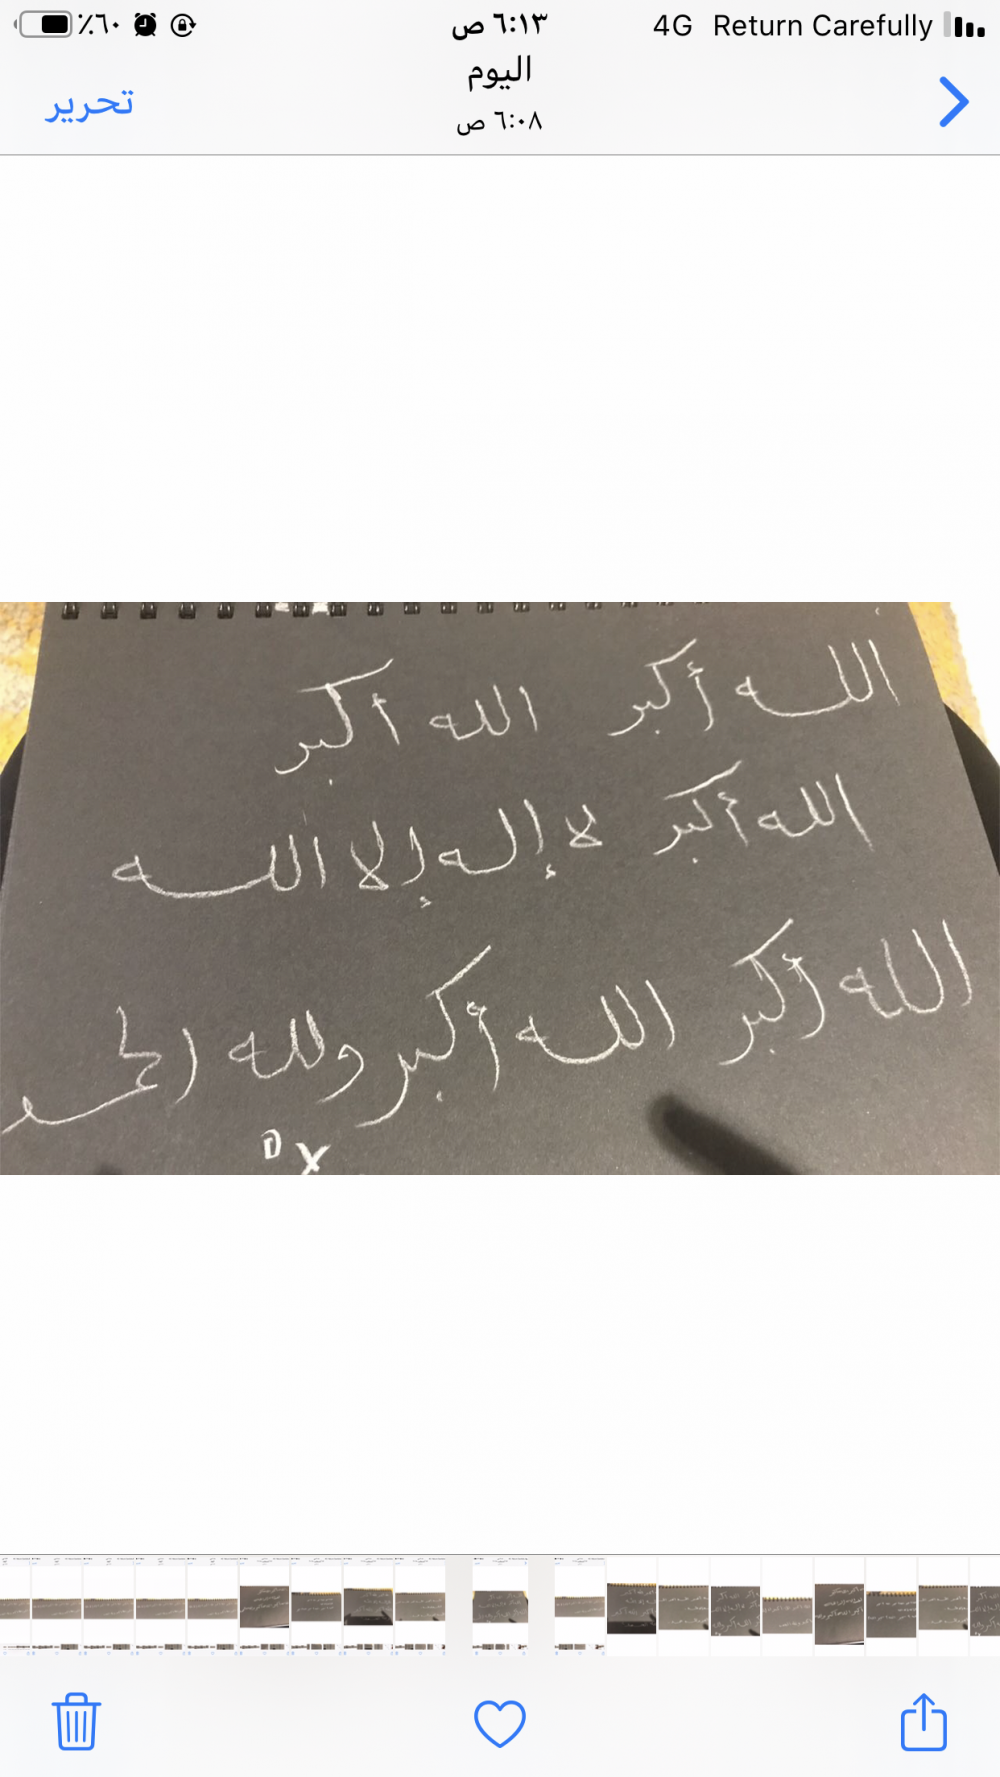 ٪٦٠ ٦:١٣ ص 4G Return Carefully
اليوم
تحرير
٦:٠٨ ص
الله أكبر الله أكبر
الله أكبر لا إله إلا الله
الله أكبر الله أكبر ولله الحمد